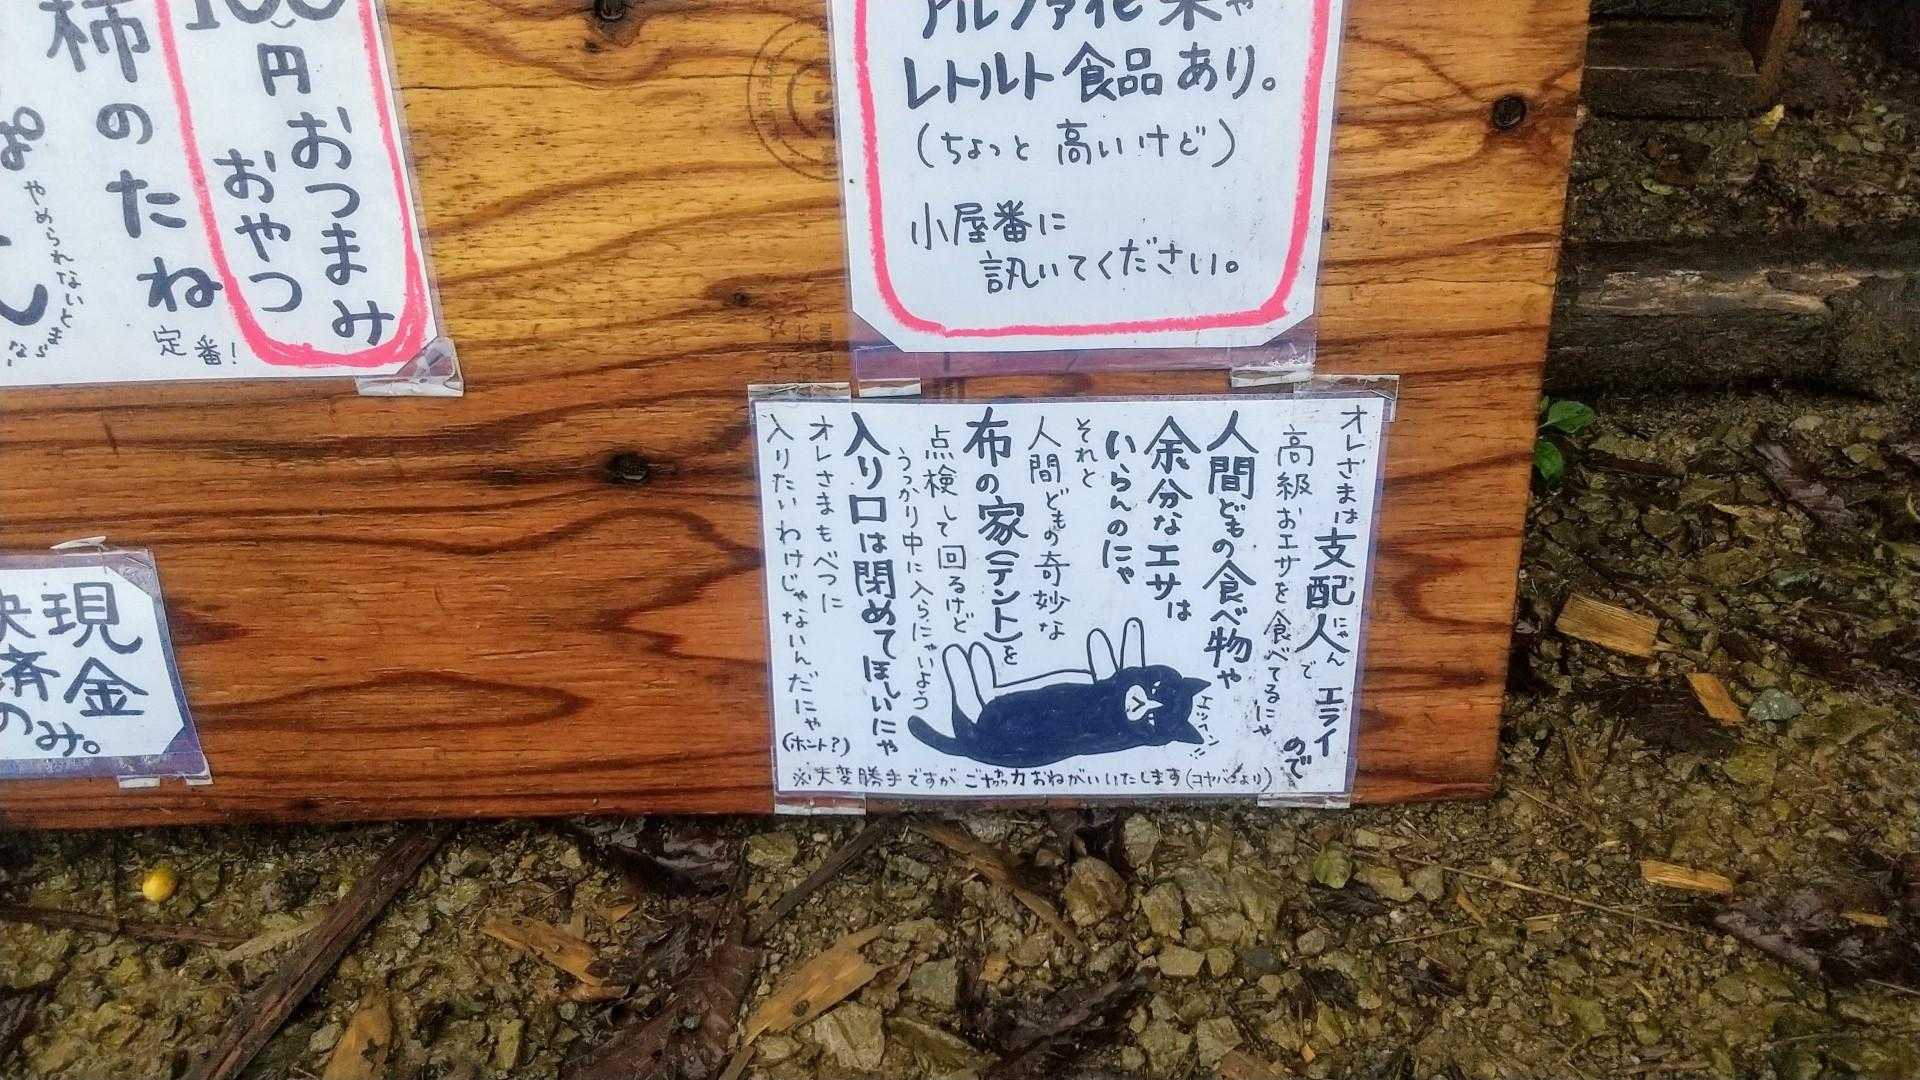 100
円おつまみ
おやつ
柿のたね
定番!
やめられないとまらない
アルファ化米や
レトルト食品あり。
(ちょっと高いけど)
小屋番に
訊いてください。
現金
決済
のみ。
オレさまは支配人でエライので
にゃん
高級おエサを食べてるにゃ
人間どもの食べ物や
余分なエサは
いらんのにゃ
それと
人間どもの奇妙な
布の家(テント)を
点検して回るけど
うっかり中に入らにゃいよう
入り口は閉めてほしいにゃ
オレさまもべつに
入りたいわけじゃないんだにゃ
(ホント?)
エッヘン!!
※大変勝手ですがご協力おねがいいたします(コヤバンより)